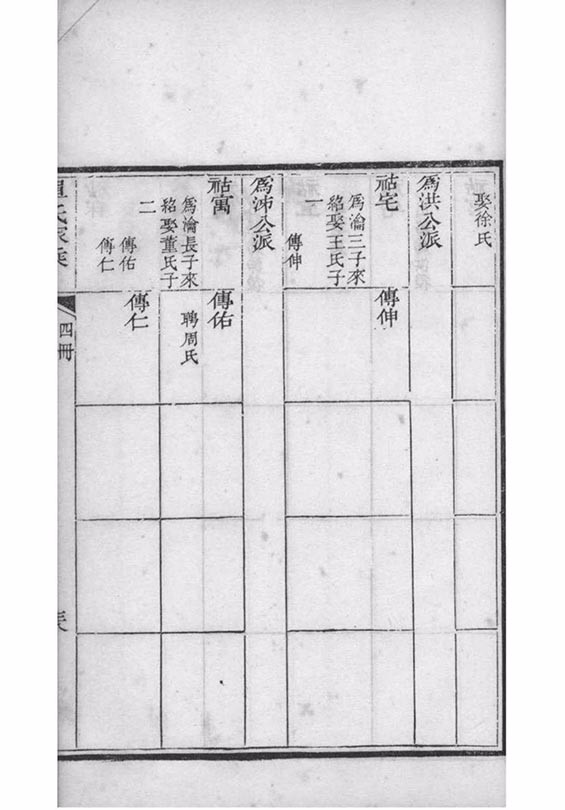 娶徐氏
爲洪公派
祜宅
爲淪三子來
紹娶王氏子
一
傳伸
傳伸
爲沛公派
祜寓
爲淪長子來
紹娶董氏子
二
傳佑
傳仁
傳佑
聘周氏
傳仁
氏家乘
四冊